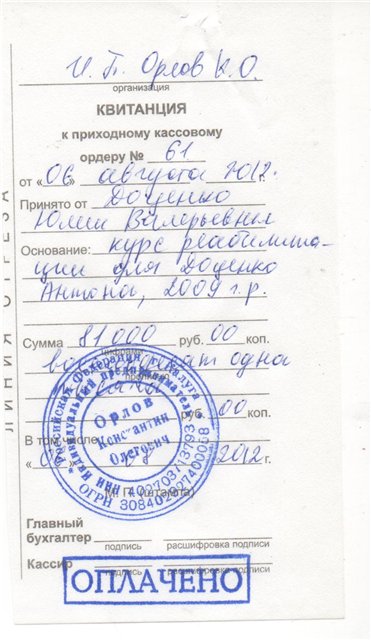 И. П. Орлов К.О.
организация
КВИТАНЦИЯ
к приходному кассовому
ордеру № 61
от «06» августа 2012г.
Принято от Доценко
Юлии Валерьевны
Основание: курс реабилита-
ции для Доценко
Антона, 2009 г.р.
Сумма 81000 руб. 00 коп.
цифрами
восемьдесят одна
прописью
тысяча
руб. 00 коп.
В том числе
2012 г.
М.П. (штампа)
Российская Федерация г. Калуга
Индивидуальный предприниматель
Орлов
Константин
Олегович
ОГРН 308402907400068
Главный
бухгалтер
подпись расшифровка подписи
Кассир
подпись расшифровка подписи
ОПЛАЧЕНО
ЛИНИЯ ОТРЕЗА